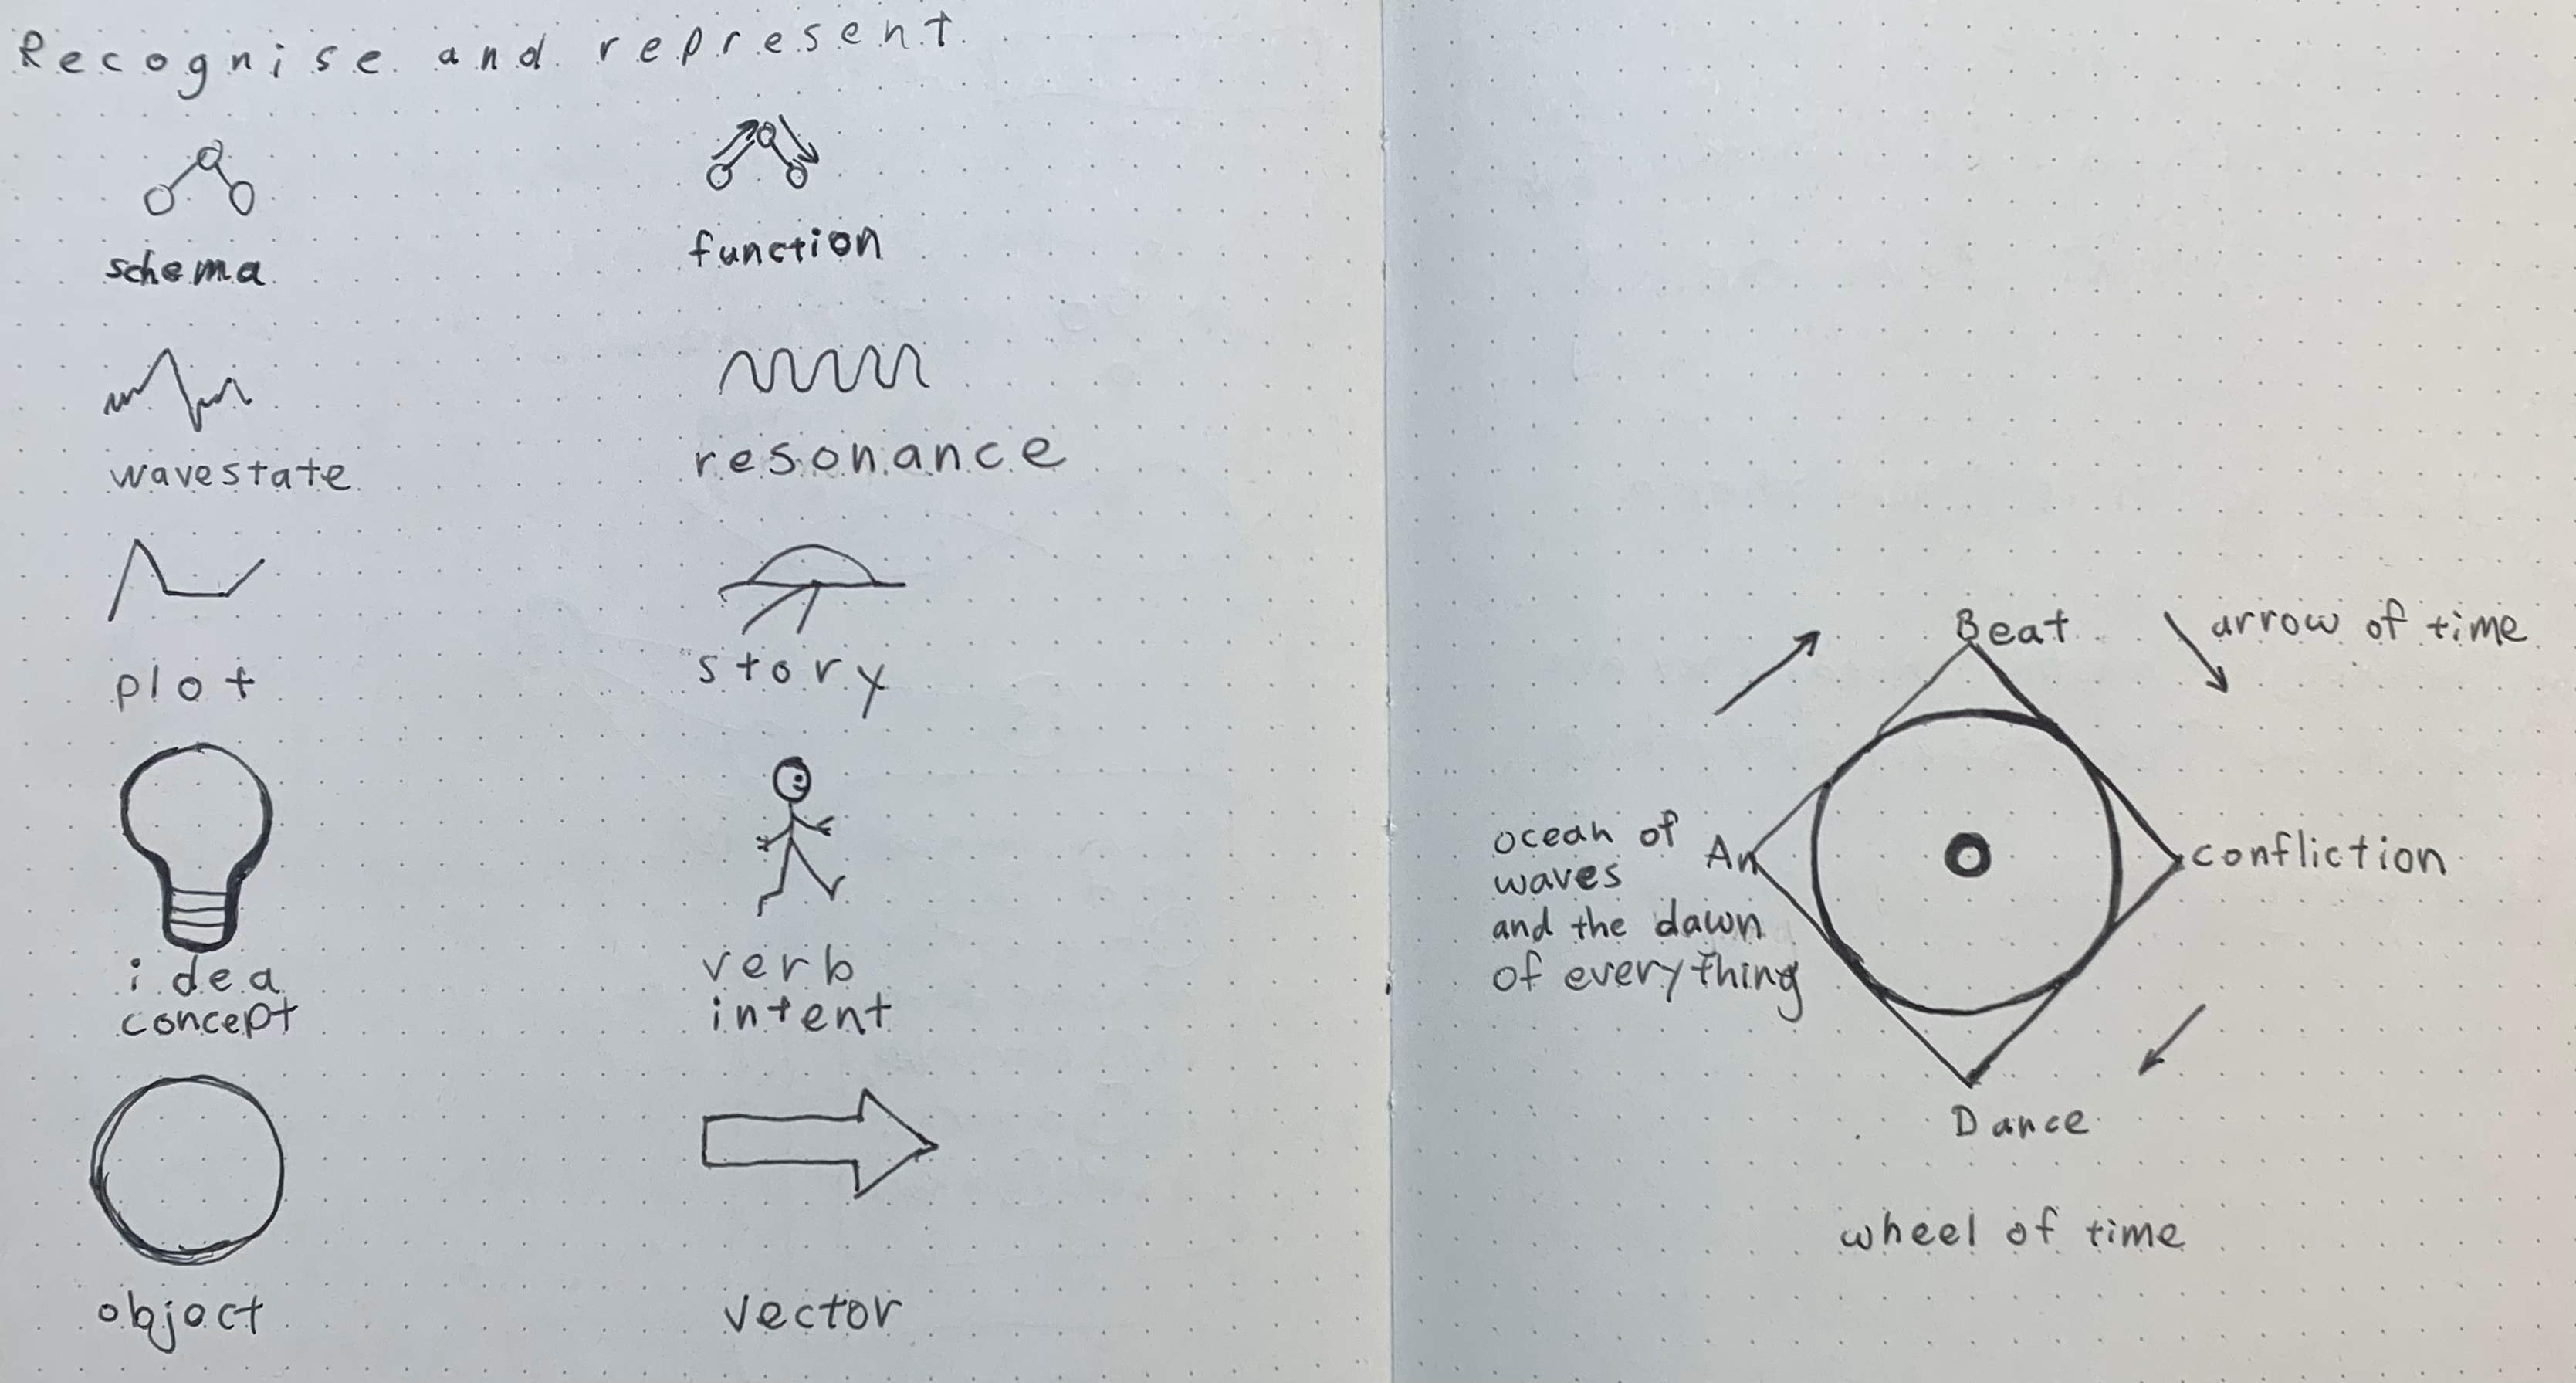 Recognise and represent
schema
function
wavestate
resonance
plot
story
idea
concept
verb
intent
object
vector
Beat
arrow of time
ocean of
waves
and the dawn
of everything
An
confliction
Dance
wheel of time